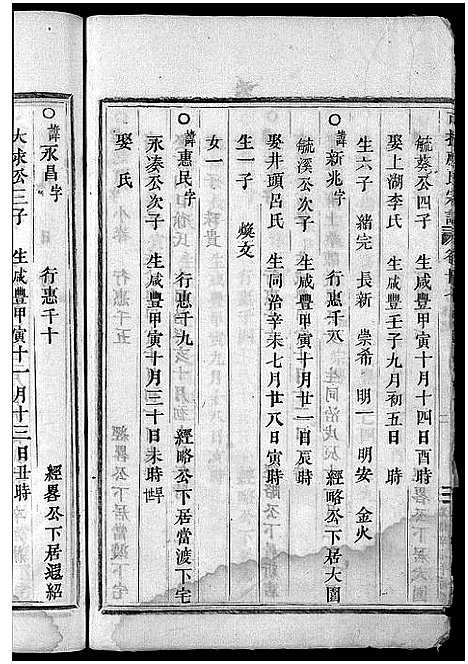 毓蔡公四子　生咸豐甲寅十月十四日酉時
娶上湖李氏　生咸豐壬子九月初五日　時
生六子　緒完　長新　崇希　明一　明安　金火
○諱新兆字　行惠千八　經略公下居大園
毓溪公次子　生咸豐甲寅十月廿一日辰時
娶井頭呂氏　生同治辛未七月廿八日寅時
生一子　煥文
女一
○諱惠民字　行惠千九　經略公下居當渡下宅
永湊公次子　生咸豐甲寅十月三十日未時
娶　氏
○諱永昌字　行惠千十　經畧公下居遐紹
大球公三子　生咸豐甲寅十一月十三日丑時